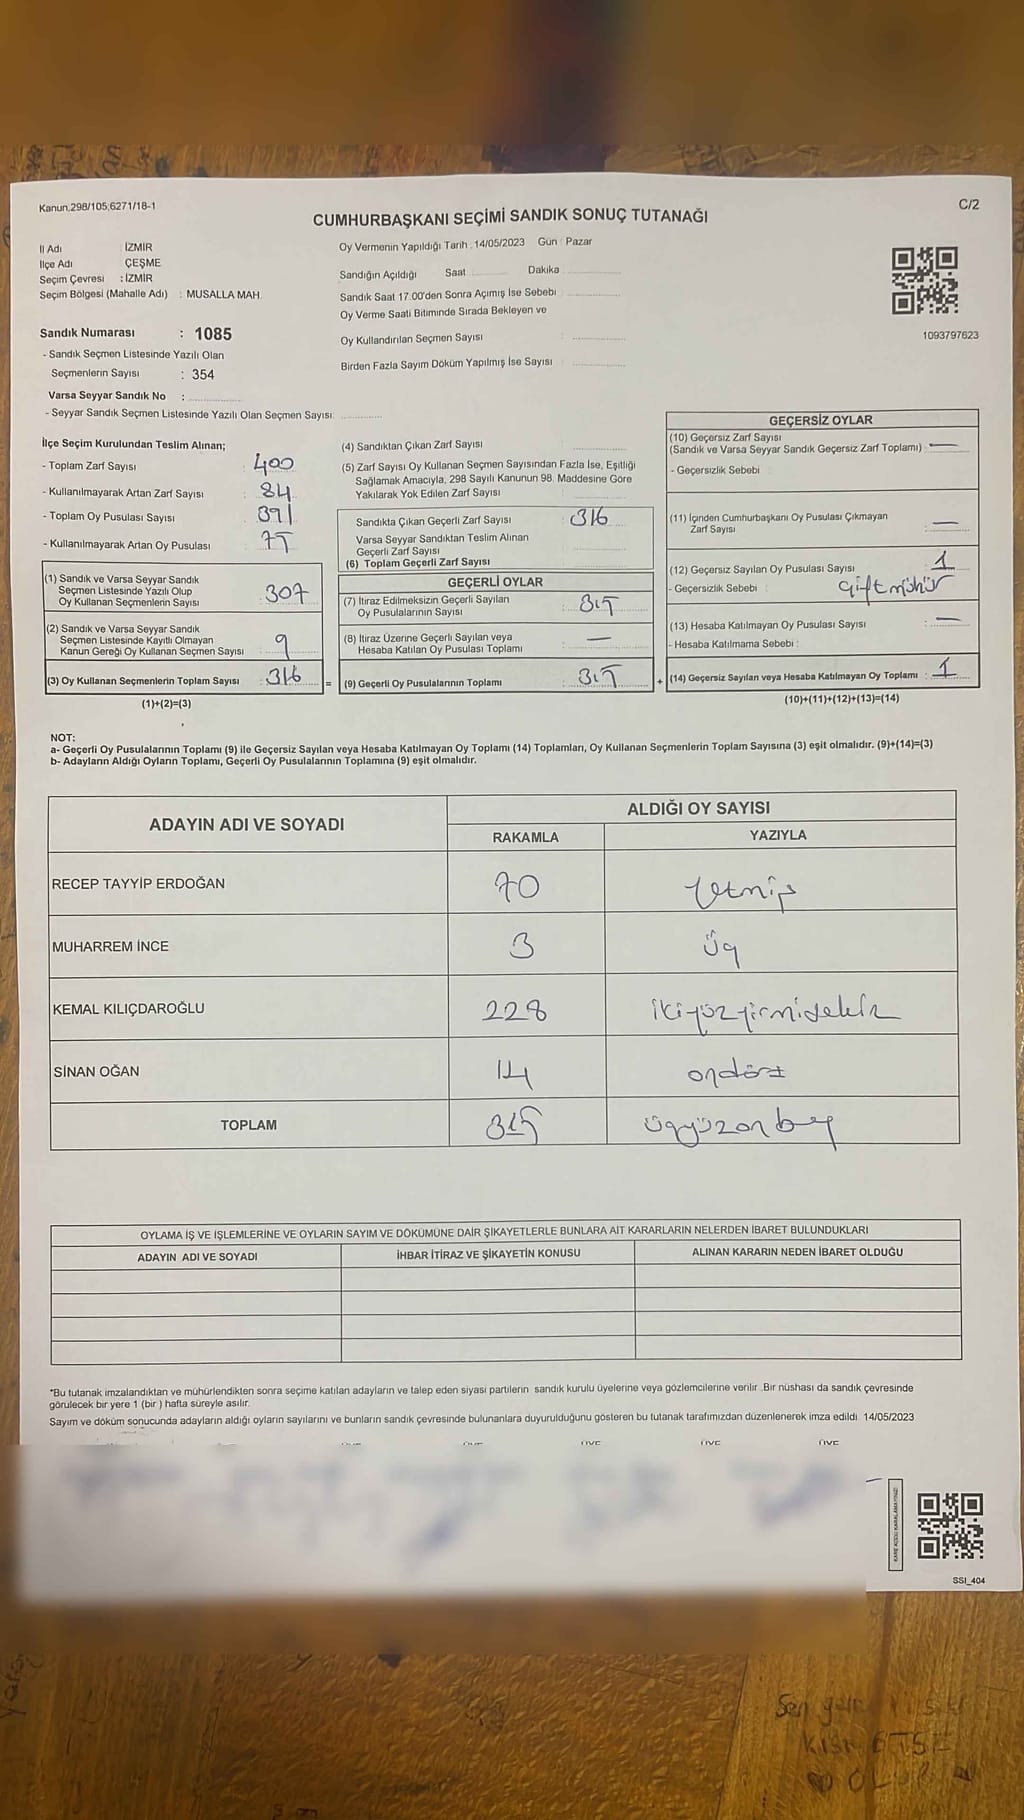 Kanun;298/105;6271/18-1
C/2
CUMHURBAŞKANI SEÇİMİ SANDIK SONUÇ TUTANAĞI
İl Adı İZMİR
İlçe Adı ÇEŞME
Seçim Çevresi : İZMİR
Seçim Bölgesi (Mahalle Adı) : MUSALLA MAH.
Oy Vermenin Yapıldığı Tarih : 14/05/2023 Gün : Pazar
Sandığın Açıldığı Saat Dakika
Sandık Saat 17.00'den Sonra Açımış İse Sebebi
Oy Verme Saati Bitiminde Sırada Bekleyen ve
Oy Kullandırılan Seçmen Sayısı
Birden Fazla Sayım Döküm Yapılmış İse Sayısı
1093797623
Sandık Numarası : 1085
- Sandık Seçmen Listesinde Yazılı Olan
Seçmenlerin Sayısı : 354
Varsa Seyyar Sandık No :
- Seyyar Sandık Seçmen Listesinde Yazılı Olan Seçmen Sayısı:
İlçe Seçim Kurulundan Teslim Alınan;
- Toplam Zarf Sayısı : 400
- Kullanılmayarak Artan Zarf Sayısı : 84
- Toplam Oy Pusulası Sayısı : 391
- Kullanılmayarak Artan Oy Pusulası : 75
(1) Sandık ve Varsa Seyyar Sandık
Seçmen Listesinde Yazılı Olup
Oy Kullanan Seçmenlerin Sayısı : 307
(2) Sandık ve Varsa Seyyar Sandık
Seçmen Listesinde Kayıtlı Olmayan
Kanun Gereği Oy Kullanan Seçmen Sayısı : 9
(3) Oy Kullanan Seçmenlerin Toplam Sayısı : 316
(1)+(2)=(3)
(4) Sandıktan Çıkan Zarf Sayısı
(5) Zarf Sayısı Oy Kullanan Seçmen Sayısından Fazla İse, Eşitliği
Sağlamak Amacıyla, 298 Sayılı Kanunun 98. Maddesine Göre
Yakılarak Yok Edilen Zarf Sayısı
Sandıkta Çıkan Geçerli Zarf Sayısı : 316
Varsa Seyyar Sandıktan Teslim Alınan
Geçerli Zarf Sayısı
(6) Toplam Geçerli Zarf Sayısı
GEÇERLİ OYLAR
(7) İtiraz Edilmeksizin Geçerli Sayılan
Oy Pusulalarının Sayısı : 315
(8) İtiraz Üzerine Geçerli Sayılan veya
Hesaba Katılan Oy Pusulası Toplamı : —
= (9) Geçerli Oy Pusulalarının Toplamı : 315
GEÇERSİZ OYLAR
(10) Geçersiz Zarf Sayısı
(Sandık ve Varsa Seyyar Sandık Geçersiz Zarf Toplamı) : —
- Geçersizlik Sebebi
(11) İçinden Cumhurbaşkanı Oy Pusulası Çıkmayan
Zarf Sayısı : —
(12) Geçersiz Sayılan Oy Pusulası Sayısı : 1
- Geçersizlik Sebebi : Çift mühür
(13) Hesaba Katılmayan Oy Pusulası Sayısı : —
- Hesaba Katılmama Sebebi :
+ (14) Geçersiz Sayılan veya Hesaba Katılmayan Oy Toplamı : 1
(10)+(11)+(12)+(13)=(14)
NOT:
a- Geçerli Oy Pusulalarının Toplamı (9) ile Geçersiz Sayılan veya Hesaba Katılmayan Oy Toplamı (14) Toplamları, Oy Kullanan Seçmenlerin Toplam Sayısına (3) eşit olmalıdır. (9)+(14)=(3)
b- Adayların Aldığı Oyların Toplamı, Geçerli Oy Pusulalarının Toplamına (9) eşit olmalıdır.
ADAYIN ADI VE SOYADI
ALDIĞI OY SAYISI
RAKAMLA YAZIYLA
RECEP TAYYİP ERDOĞAN 70 Yetmiş
MUHARREM İNCE 3 Üç
KEMAL KILIÇDAROĞLU 228 ikiyüzyirmisekiz
SİNAN OĞAN 14 ondört
TOPLAM 315 üçyüzonbeş
OYLAMA İŞ VE İŞLEMLERİNE VE OYLARIN SAYIM VE DÖKÜMÜNE DAİR ŞİKAYETLERLE BUNLARA AİT KARARLARIN NELERDEN İBARET BULUNDUKLARI
ADAYIN ADI VE SOYADI İHBAR İTİRAZ VE ŞİKAYETİN KONUSU ALINAN KARARIN NEDEN İBARET OLDUĞU
*Bu tutanak imzalandıktan ve mühürlendikten sonra seçime katılan adayların ve talep eden siyasi partilerin sandık kurulu üyelerine veya gözlemcilerine verilir. Bir nüshası da sandık çevresinde
görülecek bir yere 1 (bir ) hafta süreyle asılır.
Sayım ve döküm sonucunda adayların aldığı oyların sayılarını ve bunların sandık çevresinde bulunanlara duyurulduğunu gösteren bu tutanak tarafımızdan düzenlenerek imza edildi. 14/05/2023
ÜYE ÜYE ÜYE ÜYE ÜYE
KARE KODU KARALAMAYINIZ!
SSI_404
Sen